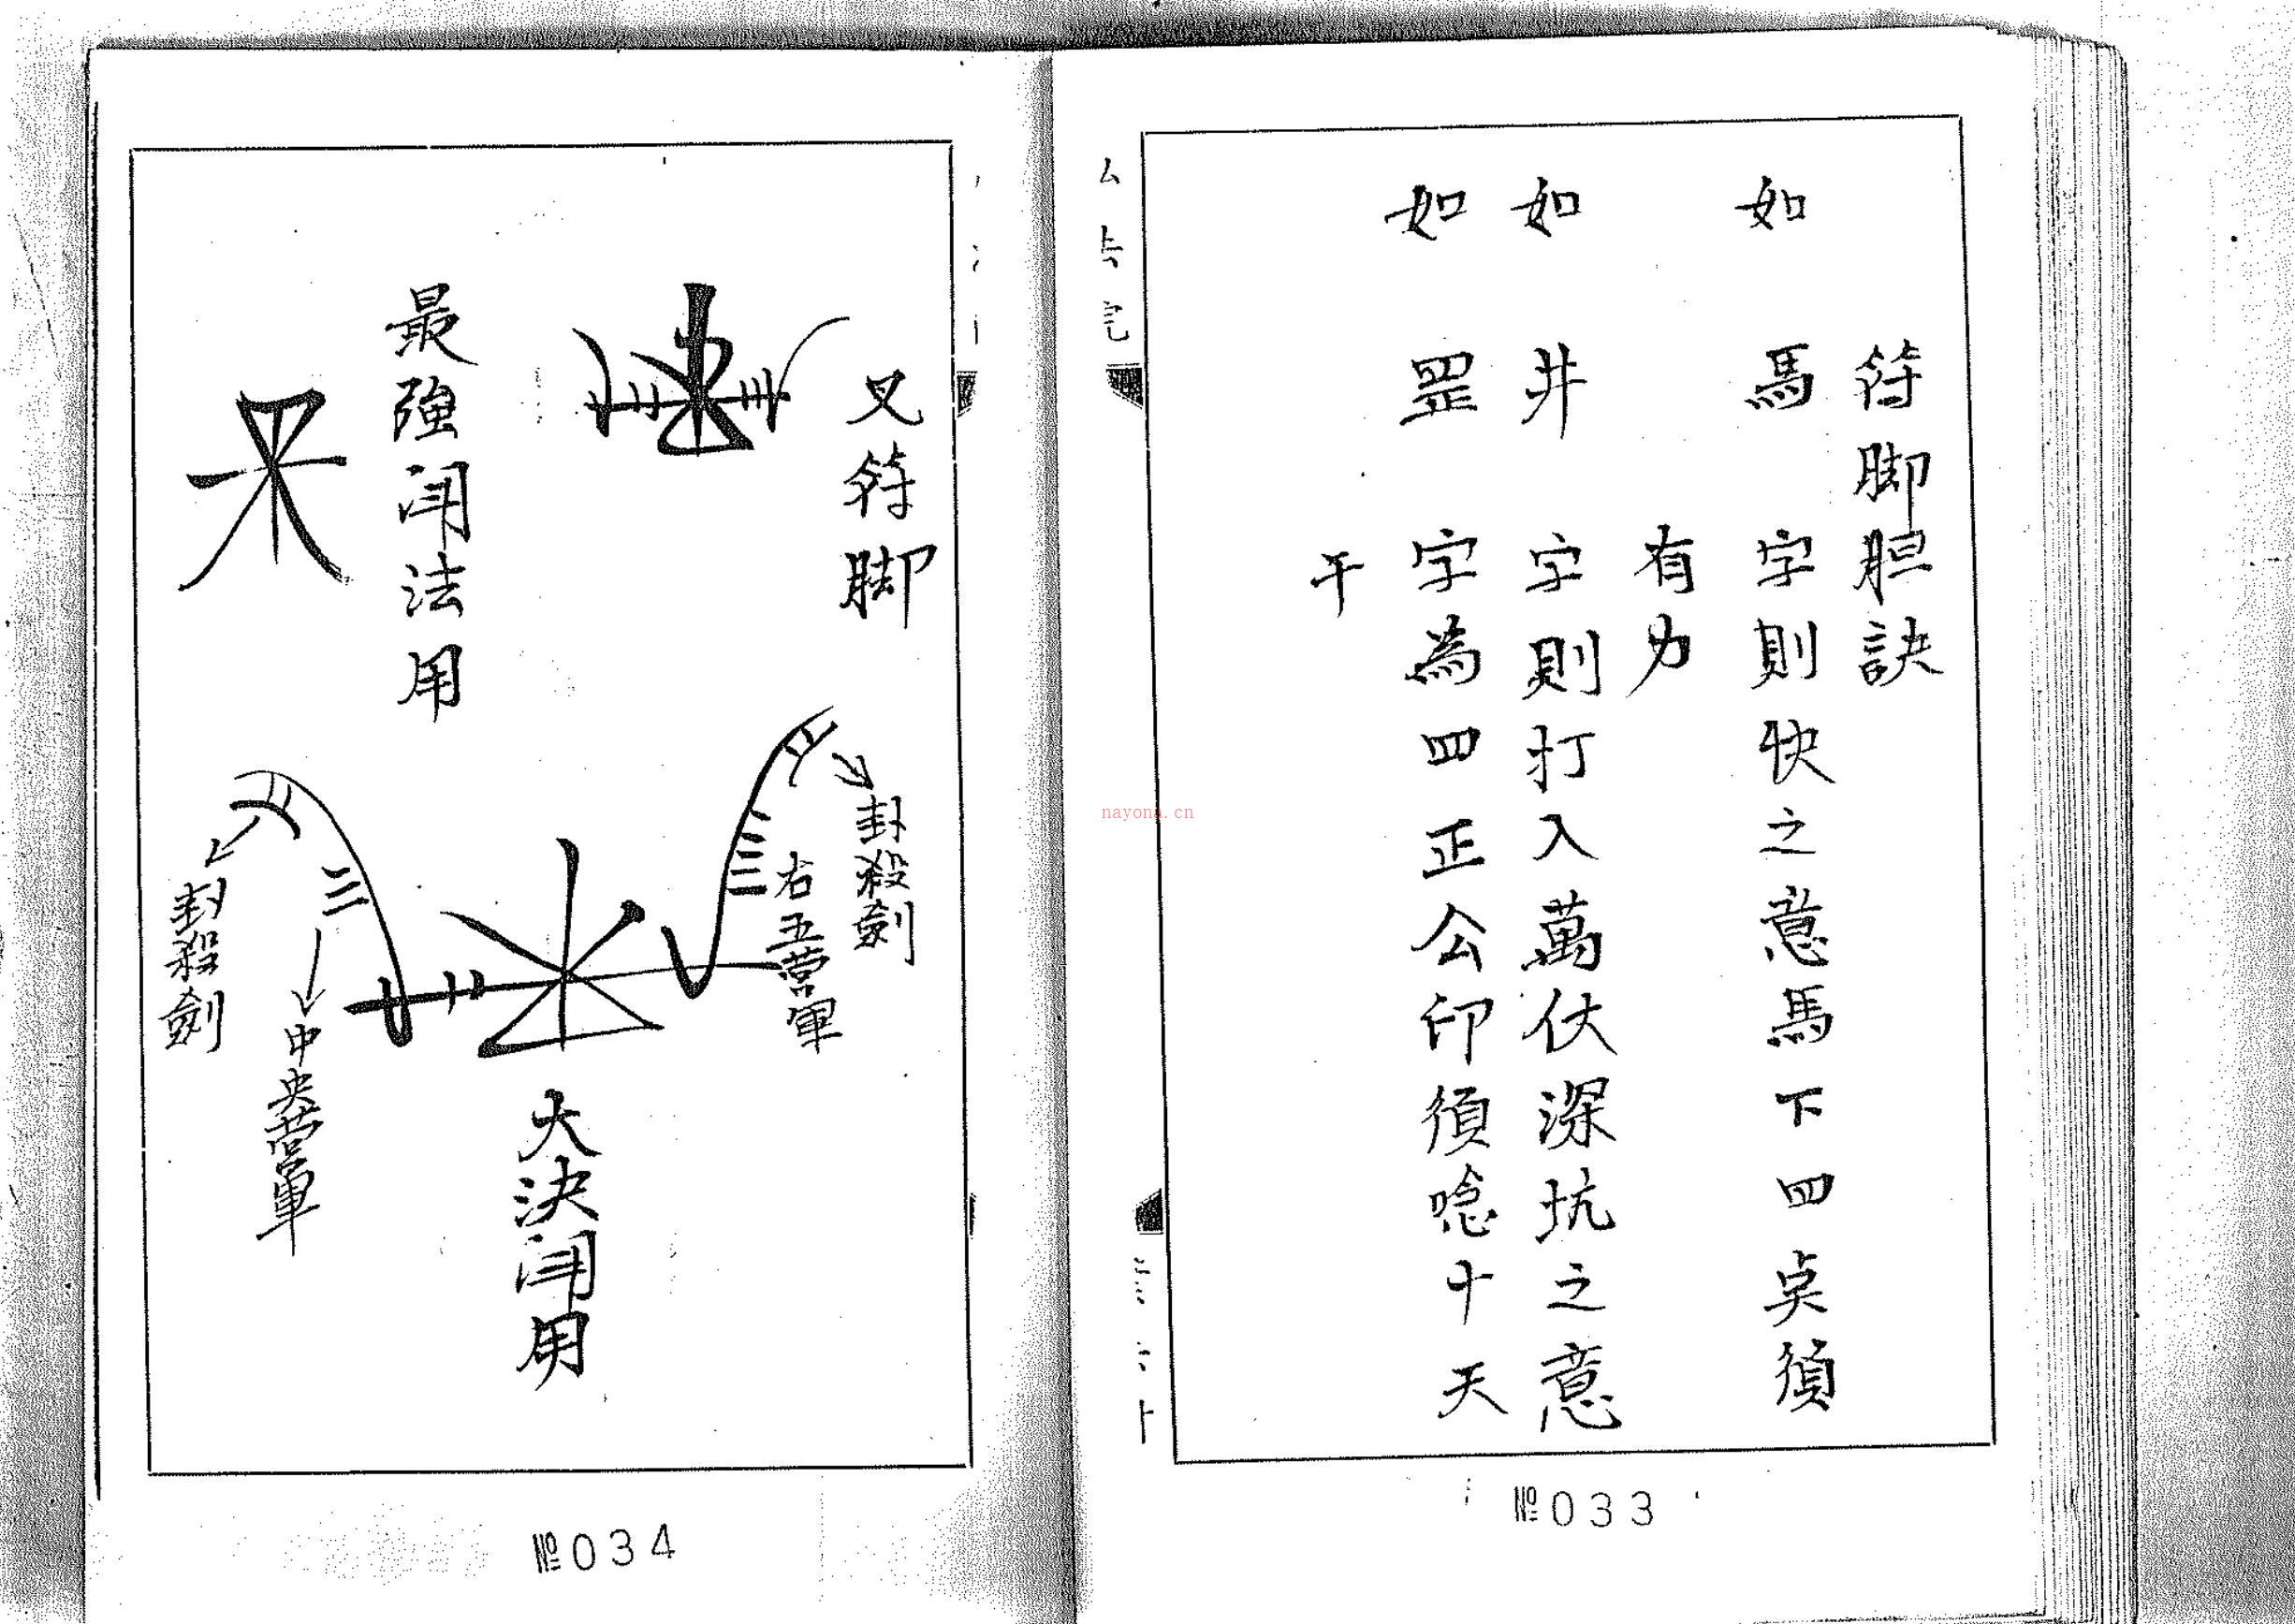 符脚胆訣
如馬字則快之意馬下四点須
有力
如井字則打入萬伏深坑之意
如罡字為四正公印須唸十天
干
№033
nayona.cn
又符脚
封殺劍
右五營軍
大決鬧用
最強鬧法用
中央營軍
封殺劍
№034